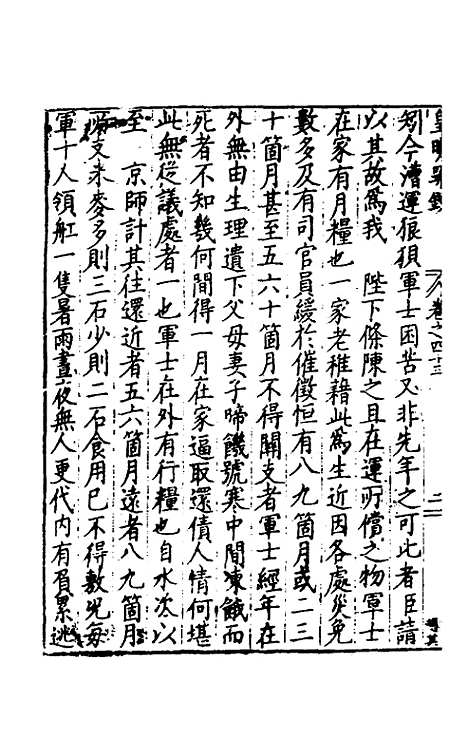 皇明疏鈔 卷之四十三 二
矧今漕運狼狽軍士困苦又非先年之可比者臣請
以其故爲我 陛下條陳之且在運所償之物軍士
在家有月糧也一家老稚藉此爲生近因各處災免
數多及有司官員緩於催徵恒有八九箇月或二三
十箇月甚至五六十箇月不得關支者軍士經年在
外無由生理遺下父母妻子啼饑號寒中間凍餓而
死者不知幾何間得一月在家逼取還債人情何堪
此無從議處者一也軍士在外有行糧也自水次以
至 京師計其往還近者五六箇月遠者八九箇月
順支米麥多則三石少則二石食用已不得敷况每
軍十人領舡一隻暑雨晝夜無人更代内有負累逃